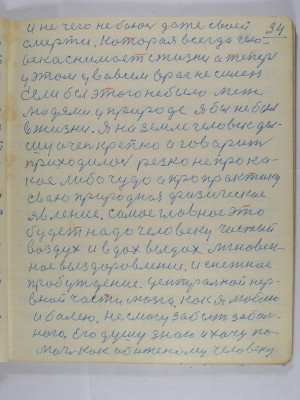 34
и не чего не боюсь даже своей
смерти. Которая всегда чело-
века снимает с жизни а теперь
у этом у во всем враг не силен
Если б с этого не было меж
людями у природе я бы не был
в жизни. Я на земле человек ды-
шу очен крепко а говарит
приходилось резко не про ка-
кое либо чудо а про практику
сваю природная физическое
явление. самое главное это
будет надо человеку чистый
воздух и вдох выдох мгновен-
ное выздоровлении. и снежное
пробуждение центральной нер-
вной части мозга. Как я люблю
и балею. Не смогу забыт забал-
ного. Его душу знаю и хачу по-
мочь как обиженому человеку